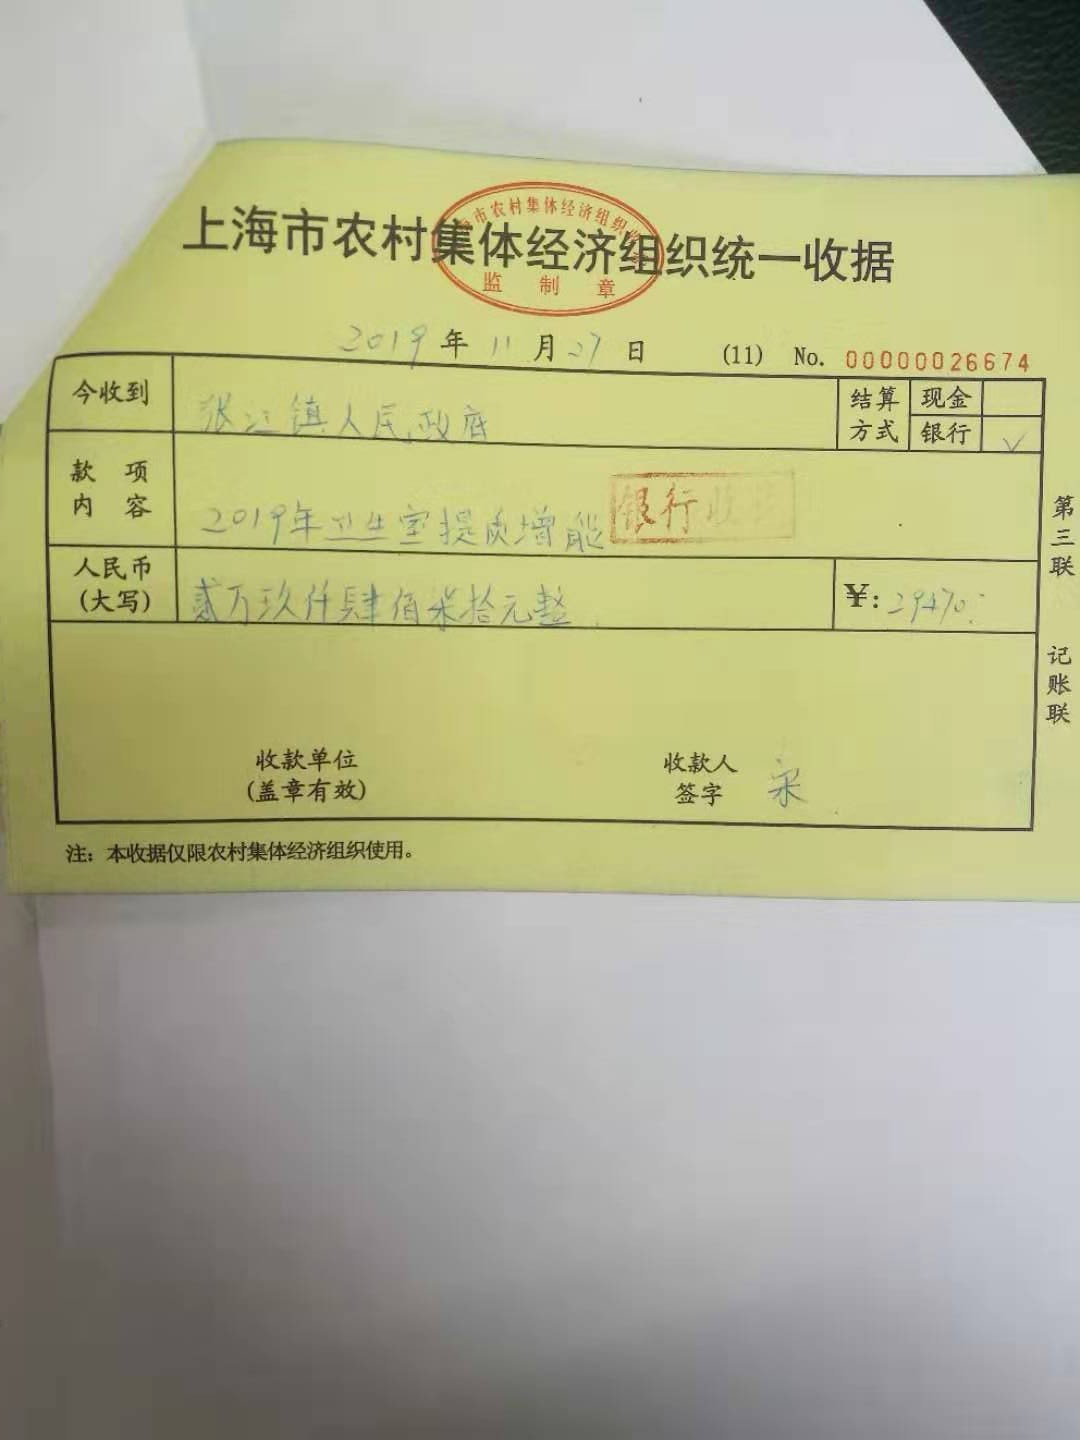 上海市农村集体经济组织统一收据
监制章
2019年11月27日 (11) No. 00000026674
今收到 张江镇人民政府 结算方式 现金
银行 ✓
款项内容 2019年卫生室提质增能 银行收
人民币(大写) 贰万玖仟肆佰柒拾元整 ¥: 29470.-
第三联 记账联
收款单位 收款人
(盖章有效) 签字 宋
注：本收据仅限农村集体经济组织使用。